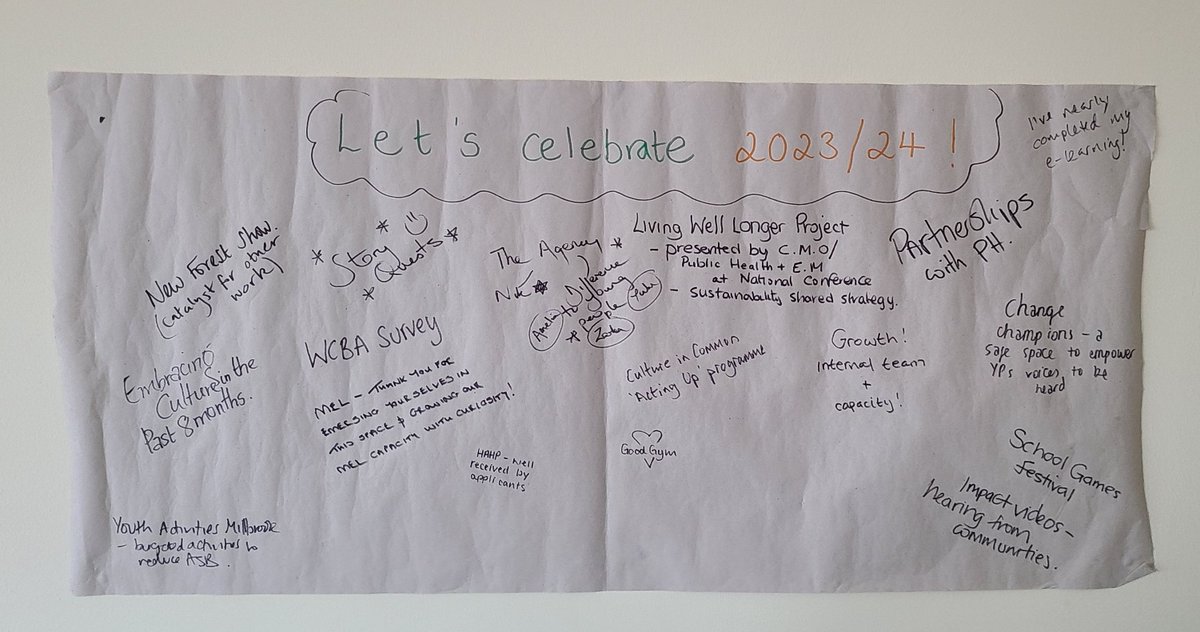 Let's celebrate 2023/24!
I've nearly
completed my
e-learning!
New Forest Show.
(catalyst for other
work)
* Story *
* Quests *
The Agency *
to Difference
young
people
Zarka
Living Well Longer Project
- presented by C.M.O/
Public Health + E.M
at National Conference
- Sustainability shared strategy.
Partnerships
with PH.
Embracing
Culture in the
Past 8 months.
WCBA Survey
MEL - THANK YOU FOR
EMERSING YOURSELVES IN
THIS SPACE & GROWING OUR
MEL CAPACITY WITH CURIOSITY!
Culture in Common
'Acting Up' programme
Growth!
Internal team
+
capacity!
Change
Champions - a
safe space to empower
YPs voices to be
heard
HAHP - well
received by
applicants
GoodGym
School Games
Festival
Impact videos -
hearing from
communities.
Youth Activities Millbrook
- activities to
reduce ASB.